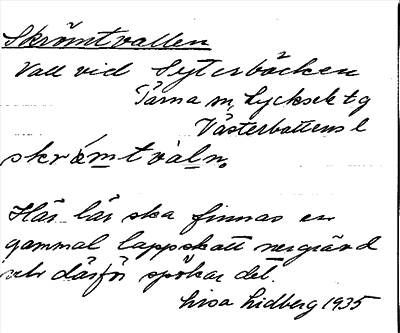 Skrömtvallen
Vall vid Syterbäcken
Tärna sn, Lycksele tg
Västerbottens l
skrämtvaln.
Här lär ska finnas en
gammal lappskatt nergrävd
och därför spökar det.
Lisa Lidberg 1935